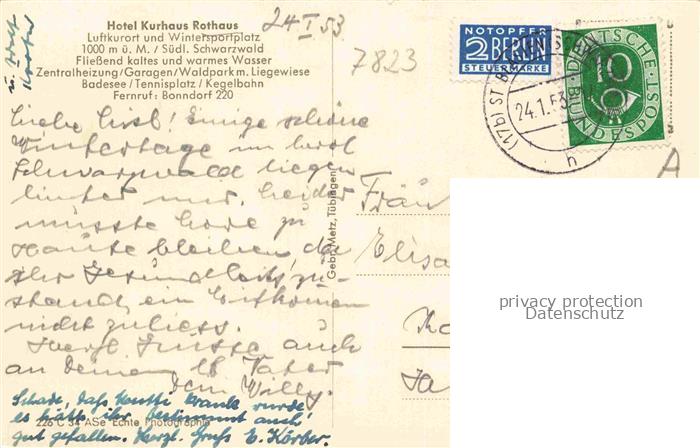 Hotel Kurhaus Rothaus
Luftkurort und Wintersportplatz
1000 m ü. M. / Südl. Schwarzwald
Fließend kaltes und warmes Wasser
Zentralheizung/Garagen/Waldpark m. Liegewiese
Badesee/Tennisplatz/Kegelbahn
Fernruf: Bonndorf 220
24 I 53
7823
NOTOPFER
2 BERLIN
STEUERMARKE
DEUTSCHE
BUNDESPOST
10
(17b) ST
24.1.53
h
A
Einige schöne
Wintertage im
Schwarzwald liegen
hinter mir. Leider
musste Lore zu
Hause bleiben, da
ihr Gesundheitszu-
stand ein Mitkommen
nicht zuliess.
Herzl. Grüsse auch
an Deinen lb Vater
Dein Willy.
Schade, daß Mutti krank wurde,
es hätte ihr bestimmt auch
gut gefallen. Herzl. Gruß E. Körber.
226 C 34 ASe Echte Photographie
Gebr. Metz, Tübingen
Fräu
Elisa
privacy protection
Datenschutz